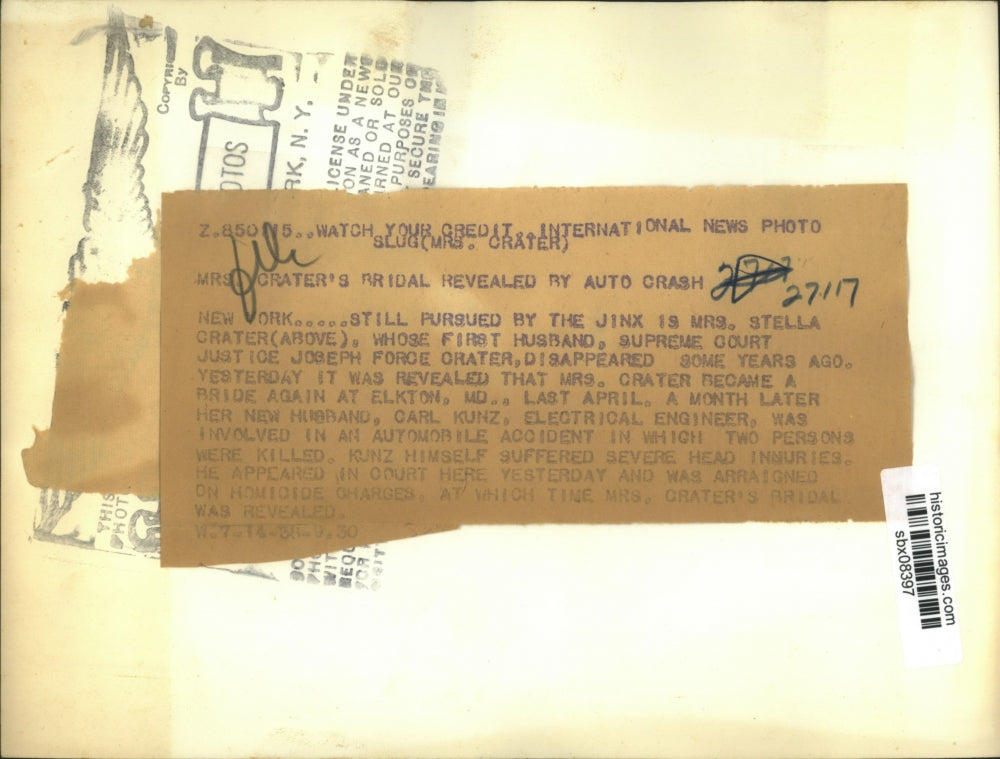 Z.850 15..WATCH YOUR CREDIT..INTERNATIONAL NEWS PHOTO
SLUG(MRS. CRATER)
MRS. CRATER'S BRIDAL REVEALED BY AUTO CRASH
27117
NEW YORK.....STILL PURSUED BY THE JINX IS MRS. STELLA
CRATER(ABOVE), WHOSE FIRST HUSBAND, SUPREME COURT
JUSTICE JOSEPH FORCE CRATER,DISAPPEARED SOME YEARS AGO.
YESTERDAY IT WAS REVEALED THAT MRS. CRATER BECAME A
BRIDE AGAIN AT ELKTON, MD., LAST APRIL. A MONTH LATER
HER NEW HUSBAND, CARL KUNZ, ELECTRICAL ENGINEER, WAS
INVOLVED IN AN AUTOMOBILE ACCIDENT IN WHICH TWO PERSONS
WERE KILLED. KUNZ HIMSELF SUFFERED SEVERE HEAD INNURIES.
HE APPEARED IN COURT HERE YESTERDAY AND WAS ARRAIGNED
ON HOMICIDE CHARGES, AT WHICH TIME MRS. CRATER'S BRIDAL
WAS REVEALED.
W.7-14-38-9.30
COPYRI
BY
OTOS
RK, N. Y.
ICENSE UNDER
ON AS A NEWS
ANED OR SOLD
RNED AT OUR
PURPOSES O
SECURE TH
EARING IN
THIS
PROT
historicimages.com
sbx08397